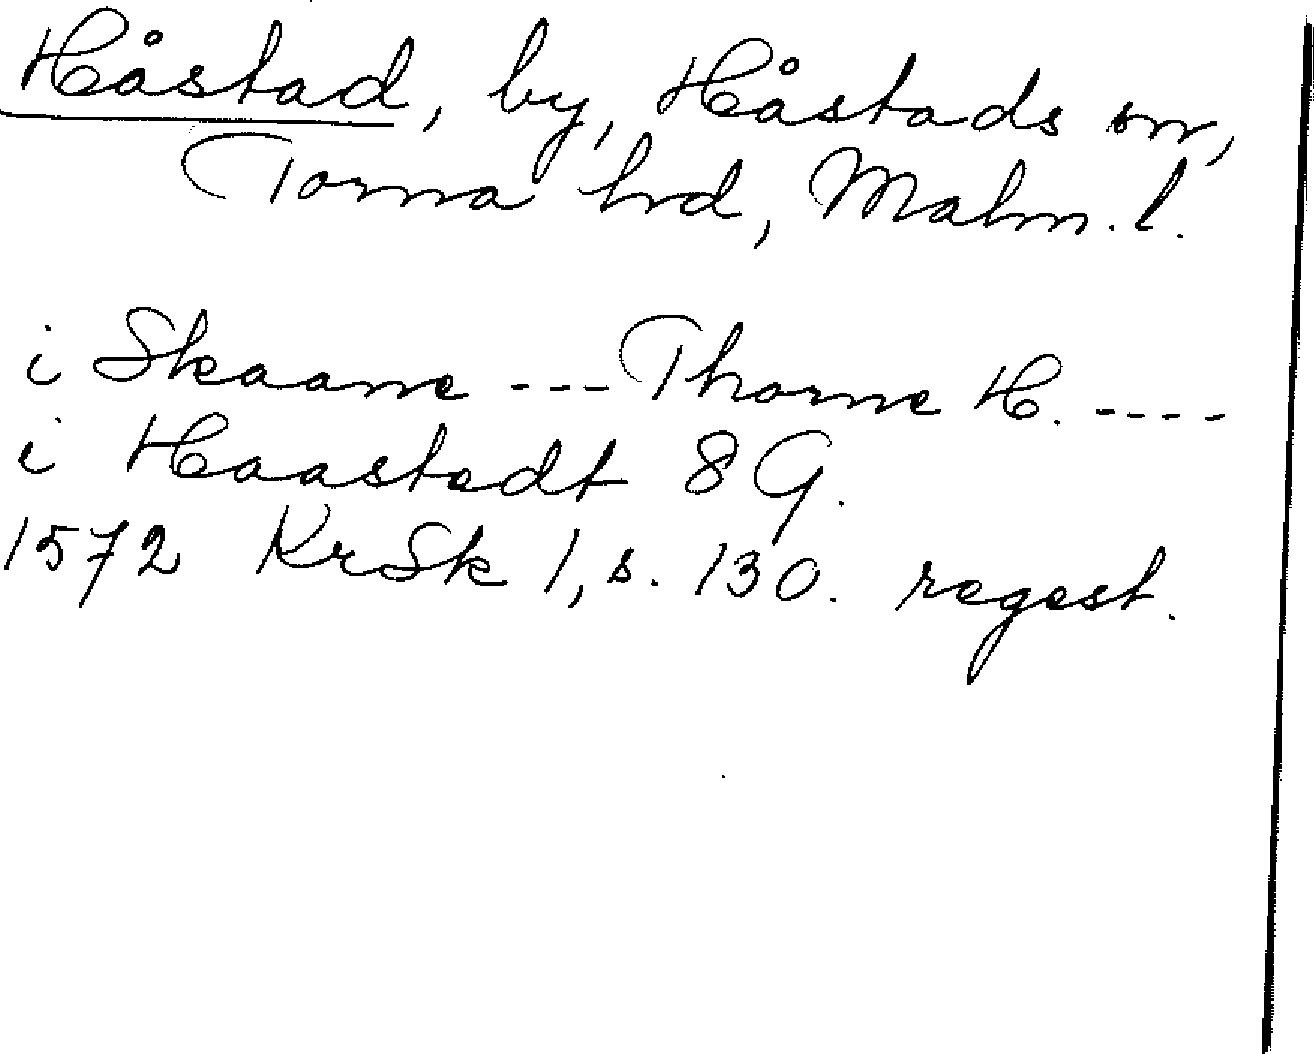 Håstad, by, Håstads sn,
Torna hd, Malm. l.
i Skaane --- Thorne H. ----
i Haastedt 8 G.
1572 KrSk 1, s. 130. regest.